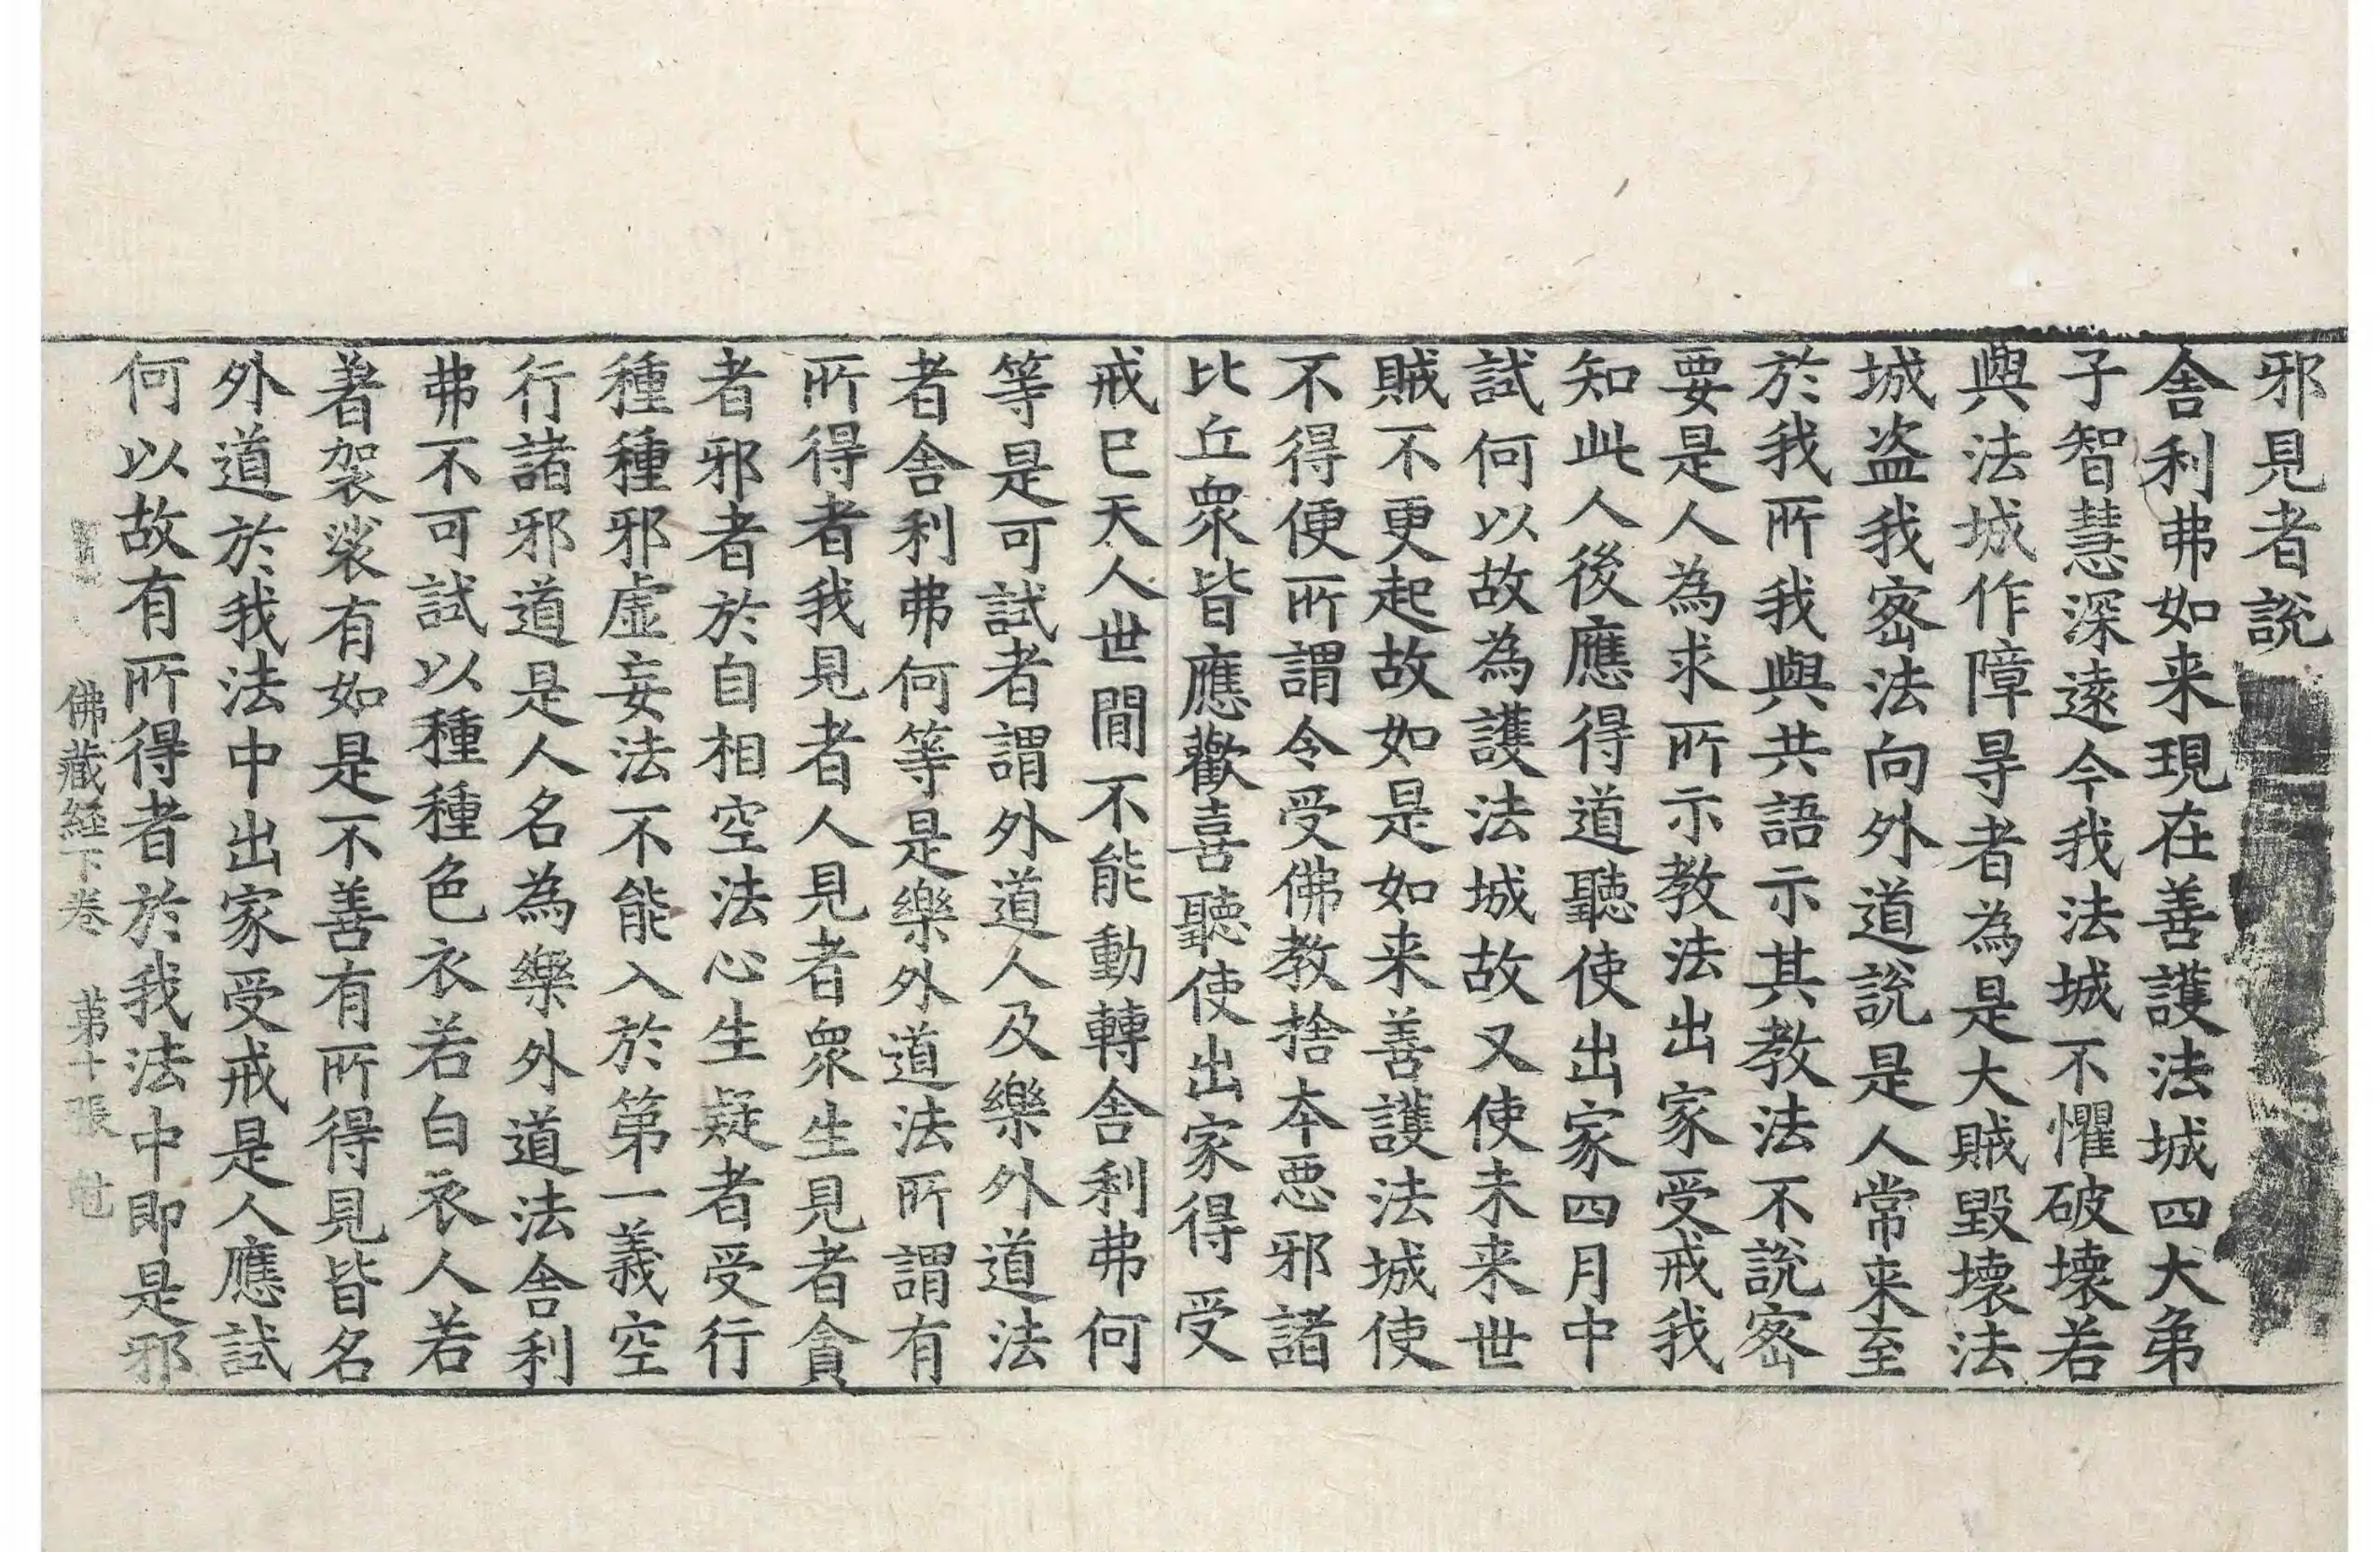 邪見者說
舎利弗如来現在善護法城四大弟
子智慧深遠今我法城不懼破壊若
與法城作障㝵者為是大賊毀壊法
城盗我宻法向外道說是人常来至
於我所我與共語示其教法不說宻
要是人為求所示教法出家受戒我
知此人後應得道聽使出家四月中
試何以故為護法城故又使未来世
賊不更起故如是如来善護法城使
不得便所謂令受佛教捨本惡邪諸
比丘衆皆應歡喜聽使出家得受
戒巳天人世間不能動轉舎利弗何
等是可試者謂外道人及樂外道法
者舎利弗何等是樂外道法所謂有
所得者我見者人見者衆生見者貪
者邪者於自相空法心生疑者受行
種種邪虛妄法不能入於第一義空
行諸邪道是人名為樂外道法舎利
弗不可試以種種色衣若白衣人若
著袈裟有如是不善有所得見皆名
外道於我法中出家受戒是人應試
何以故有所得者於我法中即是邪
佛蔵経下卷 苐十張